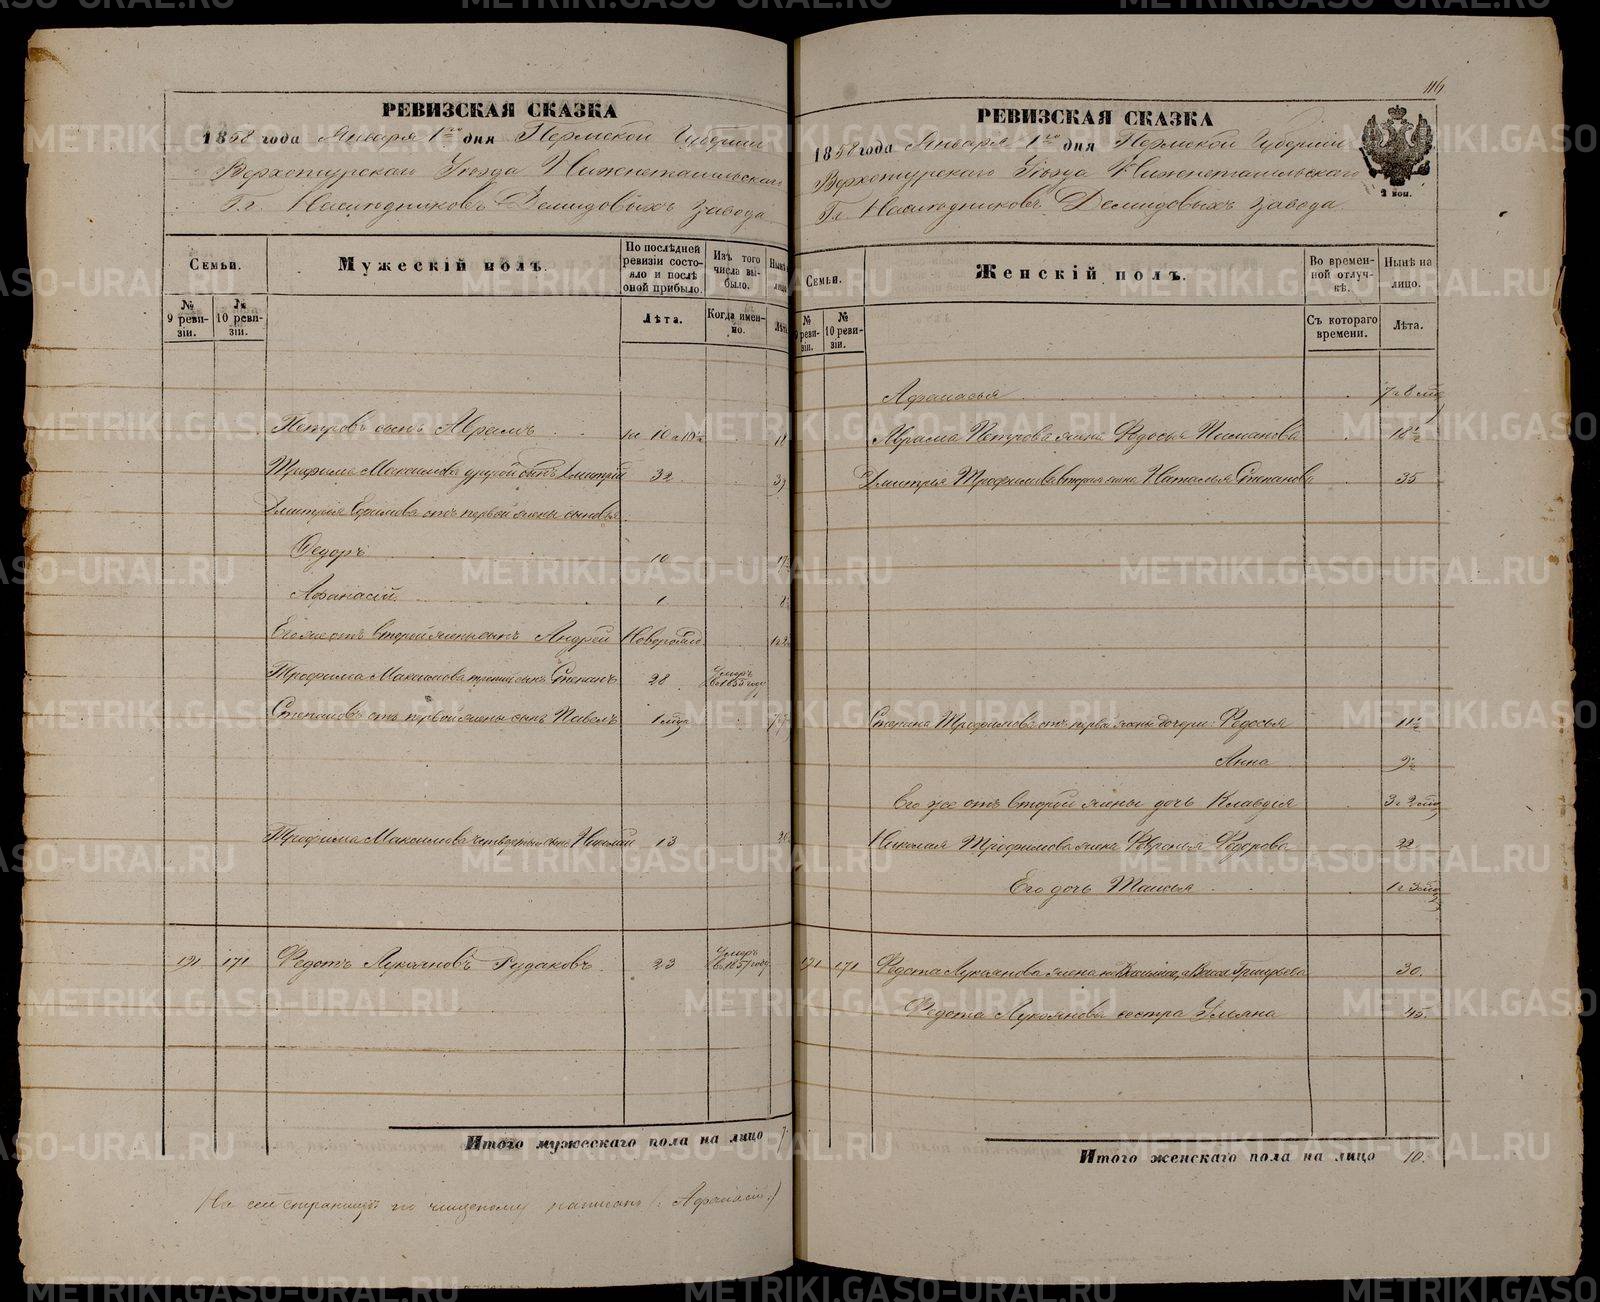 116
РЕВИЗСКАЯ СКАЗКА
1858 года Января 1го дня Пермской Губерніи
Верхотурскаго Уѣзда Нижнетагильскаго
Гг. Наслѣдниковъ Демидовыхъ завода
Семьи.
Мужескій полъ.
По послѣдней ревизіи состояло и послѣ оной прибыло.
Изъ того числа выбыло.
Нынѣ лицо
№ 9 ревизіи.
№ 10 ревизіи.
Лѣта.
Когда именно.
Лѣта
Петровъ сынъ Абрамъ
Трофима Максимова другой сынъ Дмитрій 32
Дмитрія Ефимова отъ первой жены сыновья
Федоръ 10
Афанасій 1
Его же отъ второй жены сынъ Андрей Новорожд.
Трофима Максимова третій сынъ Степанъ 28 Умеръ въ 1855 году
Степановъ отъ первой жены сынъ Павелъ
Трофима Максимова четвертый сынъ Николай 13
191 171 Федотъ Лукояновъ Рудаковъ 23 Умеръ въ 1857 году
Итого мужескаго пола на лицо 7
На сей страницѣ по написанъ (: Афанасій :)
РЕВИЗСКАЯ СКАЗКА
1858 года Января 1го дня Пермской Губерніи
Верхотурскаго Уѣзда Нижнетагильскаго
Гг. Наслѣдниковъ Демидовыхъ завода
2 коп.
Семьи.
Женскій полъ.
Во временной отлучкѣ.
Нынѣ на лицо.
№ 9 ревизіи.
№ 10 ревизіи.
Съ котораго времени.
Лѣта.
Афанасья
Абрама Петрова жена Федосья 18½
Дмитрія Трофимова вторая жена Наталья Степанова 35
Степана Трофимова отъ первой жены дочери: Федосья 11½
Анна 9½
Его же отъ второй жены дочь Клавдія
Николая Трофимова жена Февронья Федорова 22
Его дочь Таисья
191 171 Федота Лукоянова жена Григорьева 30.
Федота Лукоянова сестра Ульяна 45.
Итого женскаго пола на лицо 10.
METRIKI.GASO-URAL.RU